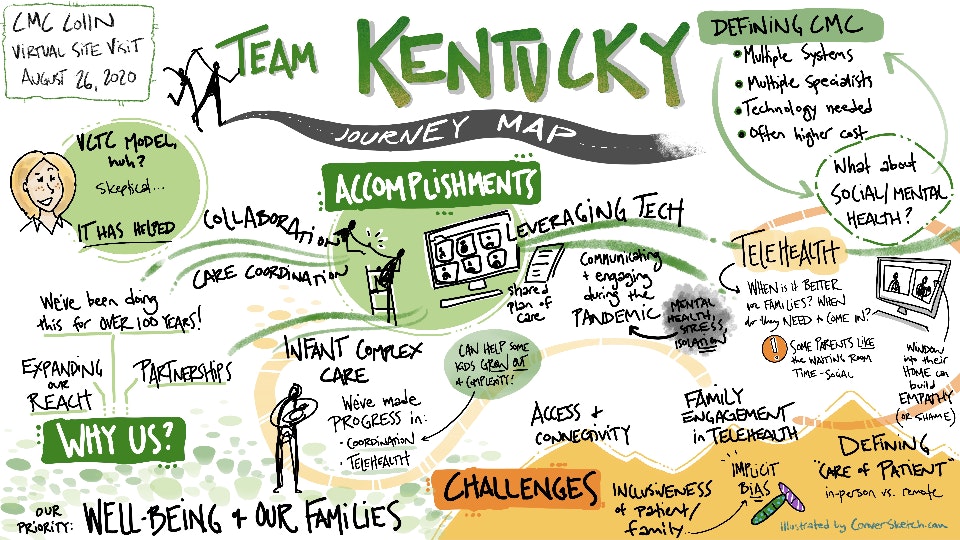 CMC CoIIN
VIRTUAL SITE VISIT
AUGUST 26, 2020
TEAM KENTUCKY
JOURNEY MAP
DEFINING CMC
• Multiple Systems
• Multiple Specialists
• Technology needed
• Often higher cost
What about
SOCIAL/MENTAL
HEALTH?
VCTC MODEL,
huh?
Skeptical...
IT HAS HELPED
ACCOMPLISHMENTS
COLLABORATION
CARE COORDINATION
LEVERAGING TECH
shared
plan of
care
Communicating
+ engaging
during the
PANDEMIC
MENTAL
HEALTH,
STRESS,
ISOLATION
TELEHEALTH
WHEN is it BETTER
for FAMILIES? WHEN
do they NEED to COME IN?
! SOME PARENTS LIKE
the WAITING ROOM
TIME-SOCIAL
WINDOW
into their
HOME can
build
EMPATHY
(OR SHAME)
We've been doing
this for OVER 100 YEARS!
EXPANDING
OUR
REACH
PARTNERSHIPS
WHY US?
INFANT COMPLEX
CARE
We've made
PROGRESS in:
- COORDINATION
- TELEHEALTH
CAN HELP SOME
KIDS GROW OUT
of COMPLEXITY!
CHALLENGES
ACCESS +
CONNECTIVITY
FAMILY
ENGAGEMENT
in TELEHEALTH
INCLUSIVENESS
of PATIENT/
FAMILY...
IMPLICIT
BIAS
DEFINING
"CARE of PATIENT"
in-person vs. remote
OUR
PRIORITY: WELL-BEING + OUR FAMILIES
illustrated by ConverSketch.com